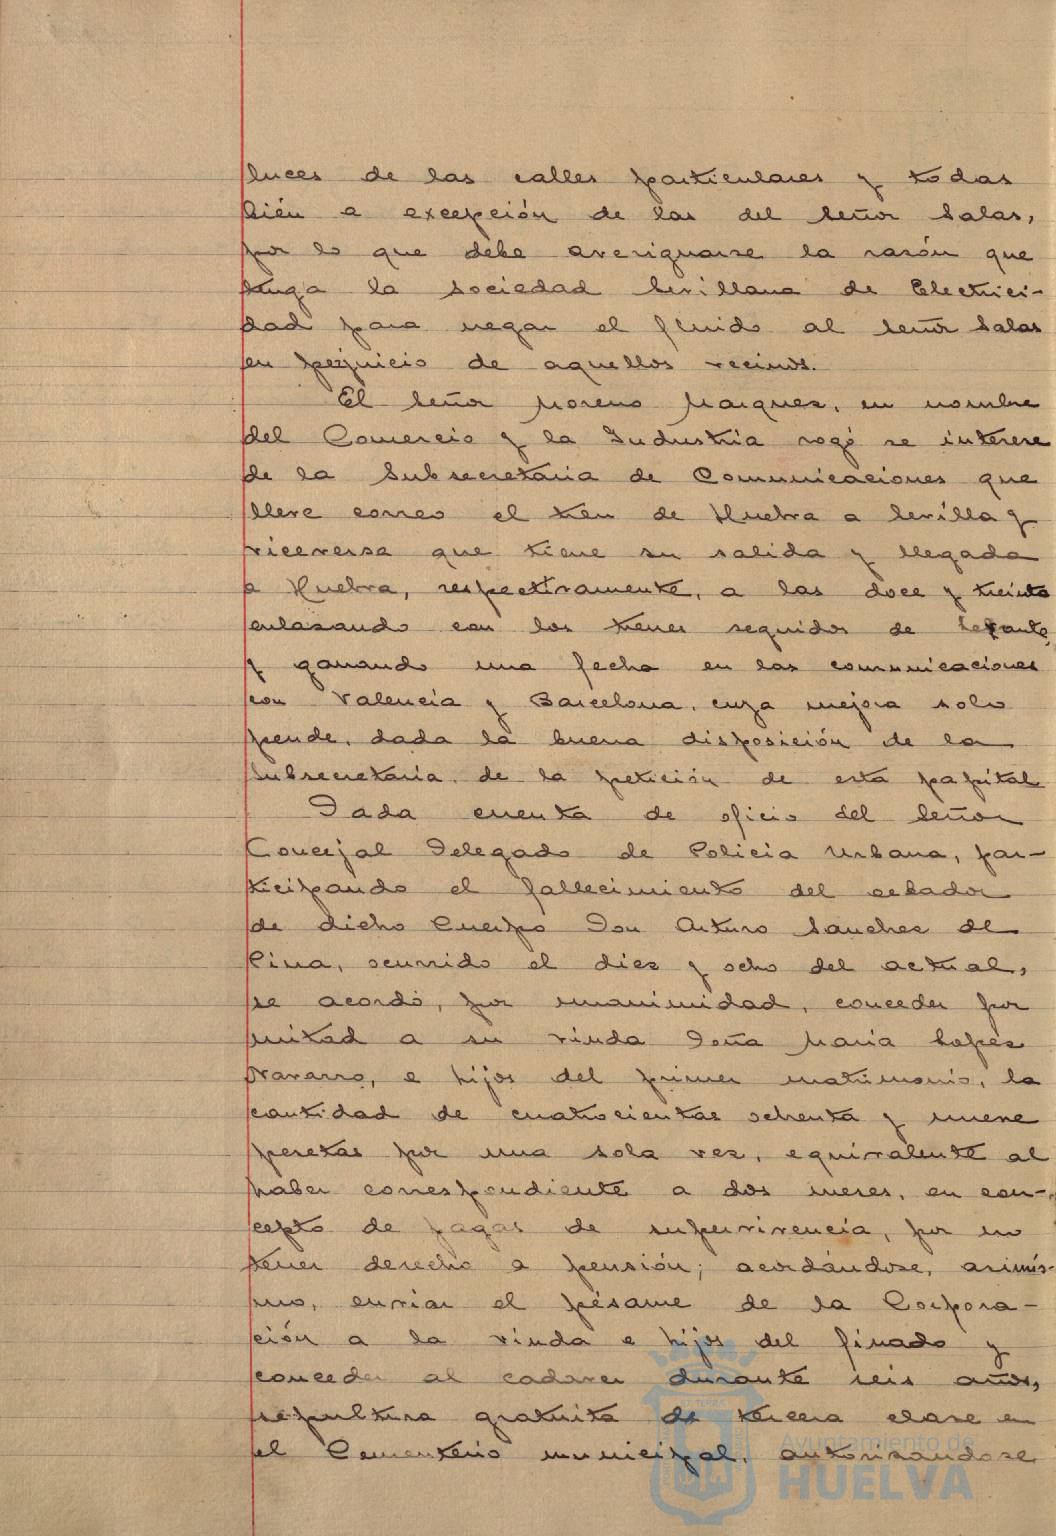 luces de las calles particulares y todas
bién a excepción de las del Señor Salas,
por lo que debe averiguarse la razón que
tenga la Sociedad Sevillana de Electrici-
dad para negar el fluido al Señor Salas
en perjuicio de aquellos vecinos.
El Señor Moreno Marquez, en nombre
del Comercio y la Industria rogó se interese
de la Subsecretaria de Comunicaciones que
lleve correo el tren de Huelva a Sevilla y
viceversa que tiene su salida y llegada
a Huelva, respectivamente, a las doce y treinta
enlazando con los trenes seguidos de Levante,
y ganando una fecha en las comunicaciones
con Valencia y Barcelona, cuya mejora solo
pende, dada la buena disposición de la
Subsecretaria, de la petición de esta papital
Dada cuenta de oficio del Señor
Concejal Delegado de Policia Urbana, par-
ticipando el fallecimiento del celador
de dicho Cuerpo Don Arturo Sanchez de
Pina, ocurrido el diez y ocho del actual,
se acordó, por unanimidad, conceder por
mitad a su viuda Doña Maria Lopez
Navarro, e hijos del primer matrimonio, la
cantidad de cuatrocientas ochenta y nueve
pesetas por una sola vez, equivalente al
haber correspondiente a dos meses, en con-
cepto de pagas de supervivencia, por no
tener derecho a pensión; acordándose, asimis-
mo, enviar el pésame de la Corpora-
ción a la viuda e hijos del finado y
conceder al cadaver durante seis años,
sepultura gratuita de tercera clase en
el Cementerio municipal, autorizandose
Ayuntamiento de
HUELVA